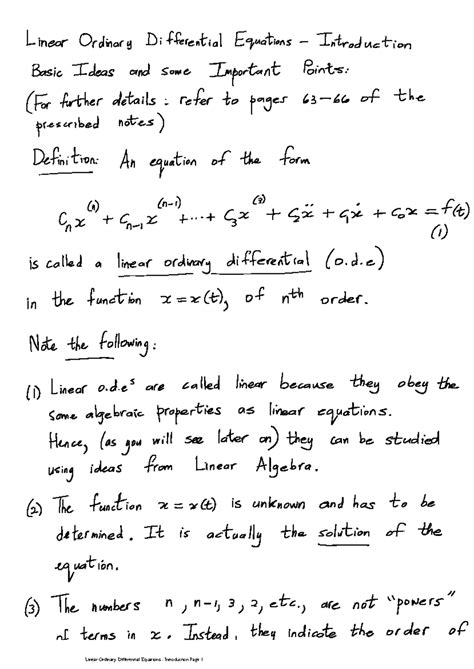 Linear Ordinary Differential Equations – Introduction
Basic Ideas and some Important Points:
(For further details : refer to pages 63–66 of the
prescribed notes)
Definition: An equation of the form
Cₙx⁽ⁿ⁾ + Cₙ₋₁x⁽ⁿ⁻¹⁾ + ··· + C₃x⁽³⁾ + C₂ẍ + C₁ẋ + C₀x = f(t)
(1)
is called a linear ordinary differential (o.d.e)
in the function x = x(t), of nth order.
Note the following:
(1) Linear o.d.eˢ are called linear because they obey the
same algebraic properties as linear equations.
Hence, (as you will see later on) they can be studied
using ideas from Linear Algebra.
(2) The function x = x(t) is unknown and has to be
determined. It is actually the solution of the
equation.
(3) The numbers n, n-1, 3, 2, etc., are not "powers"
of terms in x. Instead, they indicate the order of
Linear Ordinary Differential Equations - Introduction Page 1